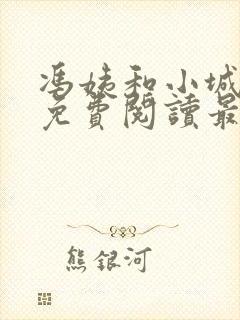 馮姨和小城
免費閱讀最
熊銀河